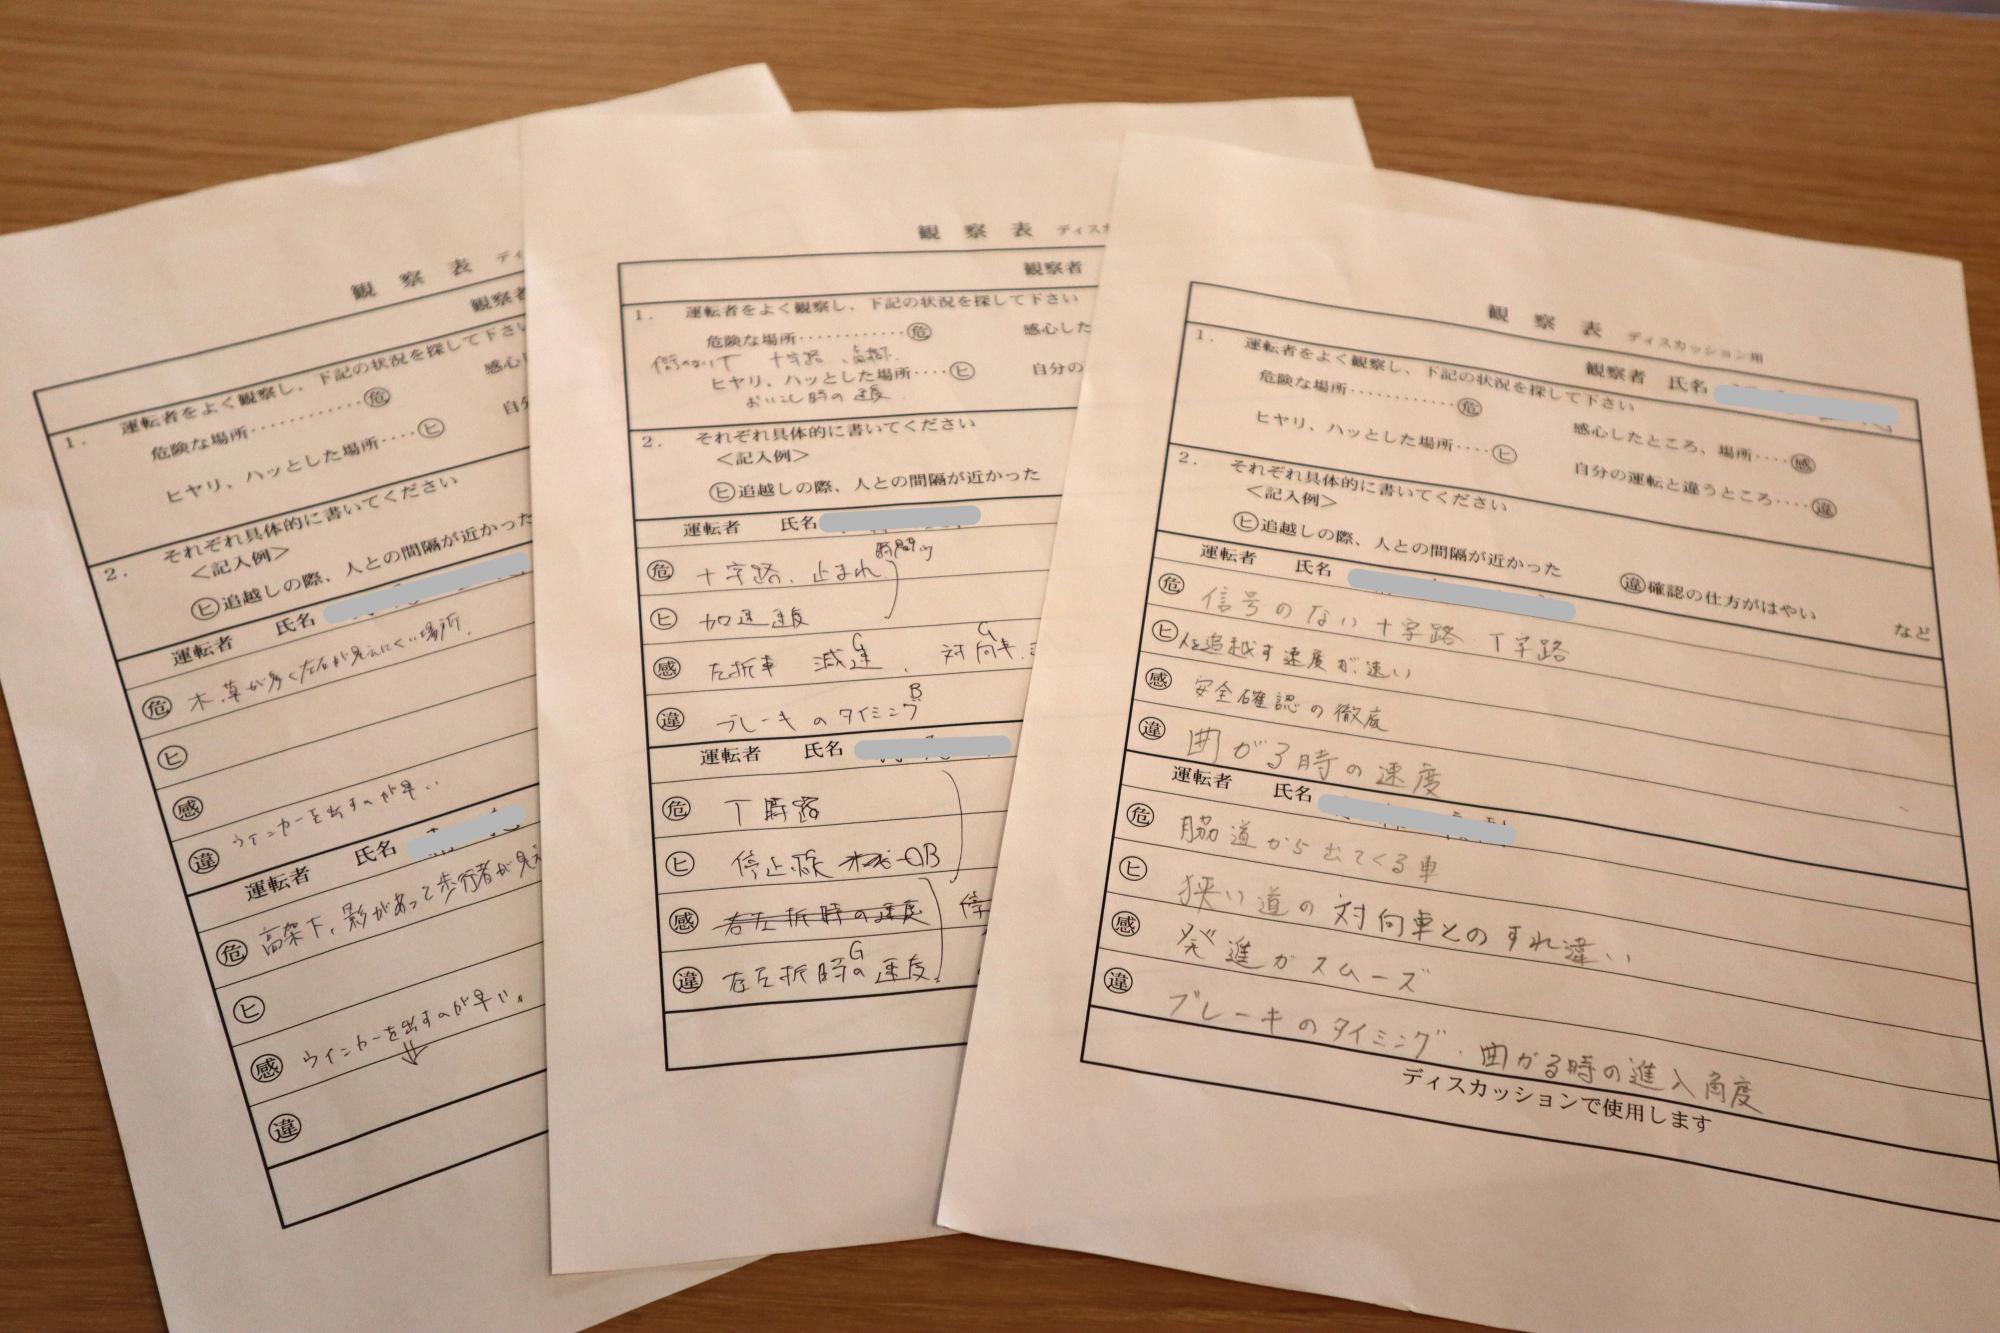 観察表
観察者
1. 運転者をよく観察し、下記の状況を探して下さい
危険な場所............危
感心
ヒヤリ、ハッとした場所....ヒ
自分
2. それぞれ具体的に書いてください
<記入例>
ヒ追越しの際、人との間隔が近かった
運転者 氏名
危 木、草が多く左右が見えにくい場所.
ヒ
感 ウインカーを出すのが早い.
違
運転者 氏名
危 高架下、影があって歩行者が見
ヒ
感 ウインカーを出すのが早い。
違
観察表 ディスカ
観察者
1. 運転者をよく観察し、下記の状況を探して下さい
危険な場所............危 感心した
十字路、高架下
ヒヤリ、ハッとした場所....ヒ 自分の
おいこし時の速度
2. それぞれ具体的に書いてください
<記入例>
ヒ追越しの際、人との間隔が近かった
運転者 氏名
危 十字路、止まれ
ヒ 加速速度
感 左折車 減速G、対向車G
違 ブレーキのタイミングB
運転者 氏名
危 T 路
ヒ 停止線 B
感 右左折時の速度 停
違 右左折時の速度 G
観察表 ディスカッション用
観察者 氏名
1. 運転者をよく観察し、下記の状況を探して下さい
危険な場所............危 感心したところ、場所....感
ヒヤリ、ハッとした場所....ヒ 自分の運転と違うところ....違
2. それぞれ具体的に書いてください
<記入例>
ヒ追越しの際、人との間隔が近かった 違確認の仕方がはやい など
運転者 氏名
危 信号のない十字路・T字路
ヒ 人を追越す速度が速い
感 安全確認の徹底
違 曲がる時の速度
運転者 氏名
危 脇道から出てくる車
ヒ 狭い道の対向車とのすれ違い
感 発進がスムーズ
違 ブレーキのタイミング・曲がる時の進入角度
ディスカッションで使用します